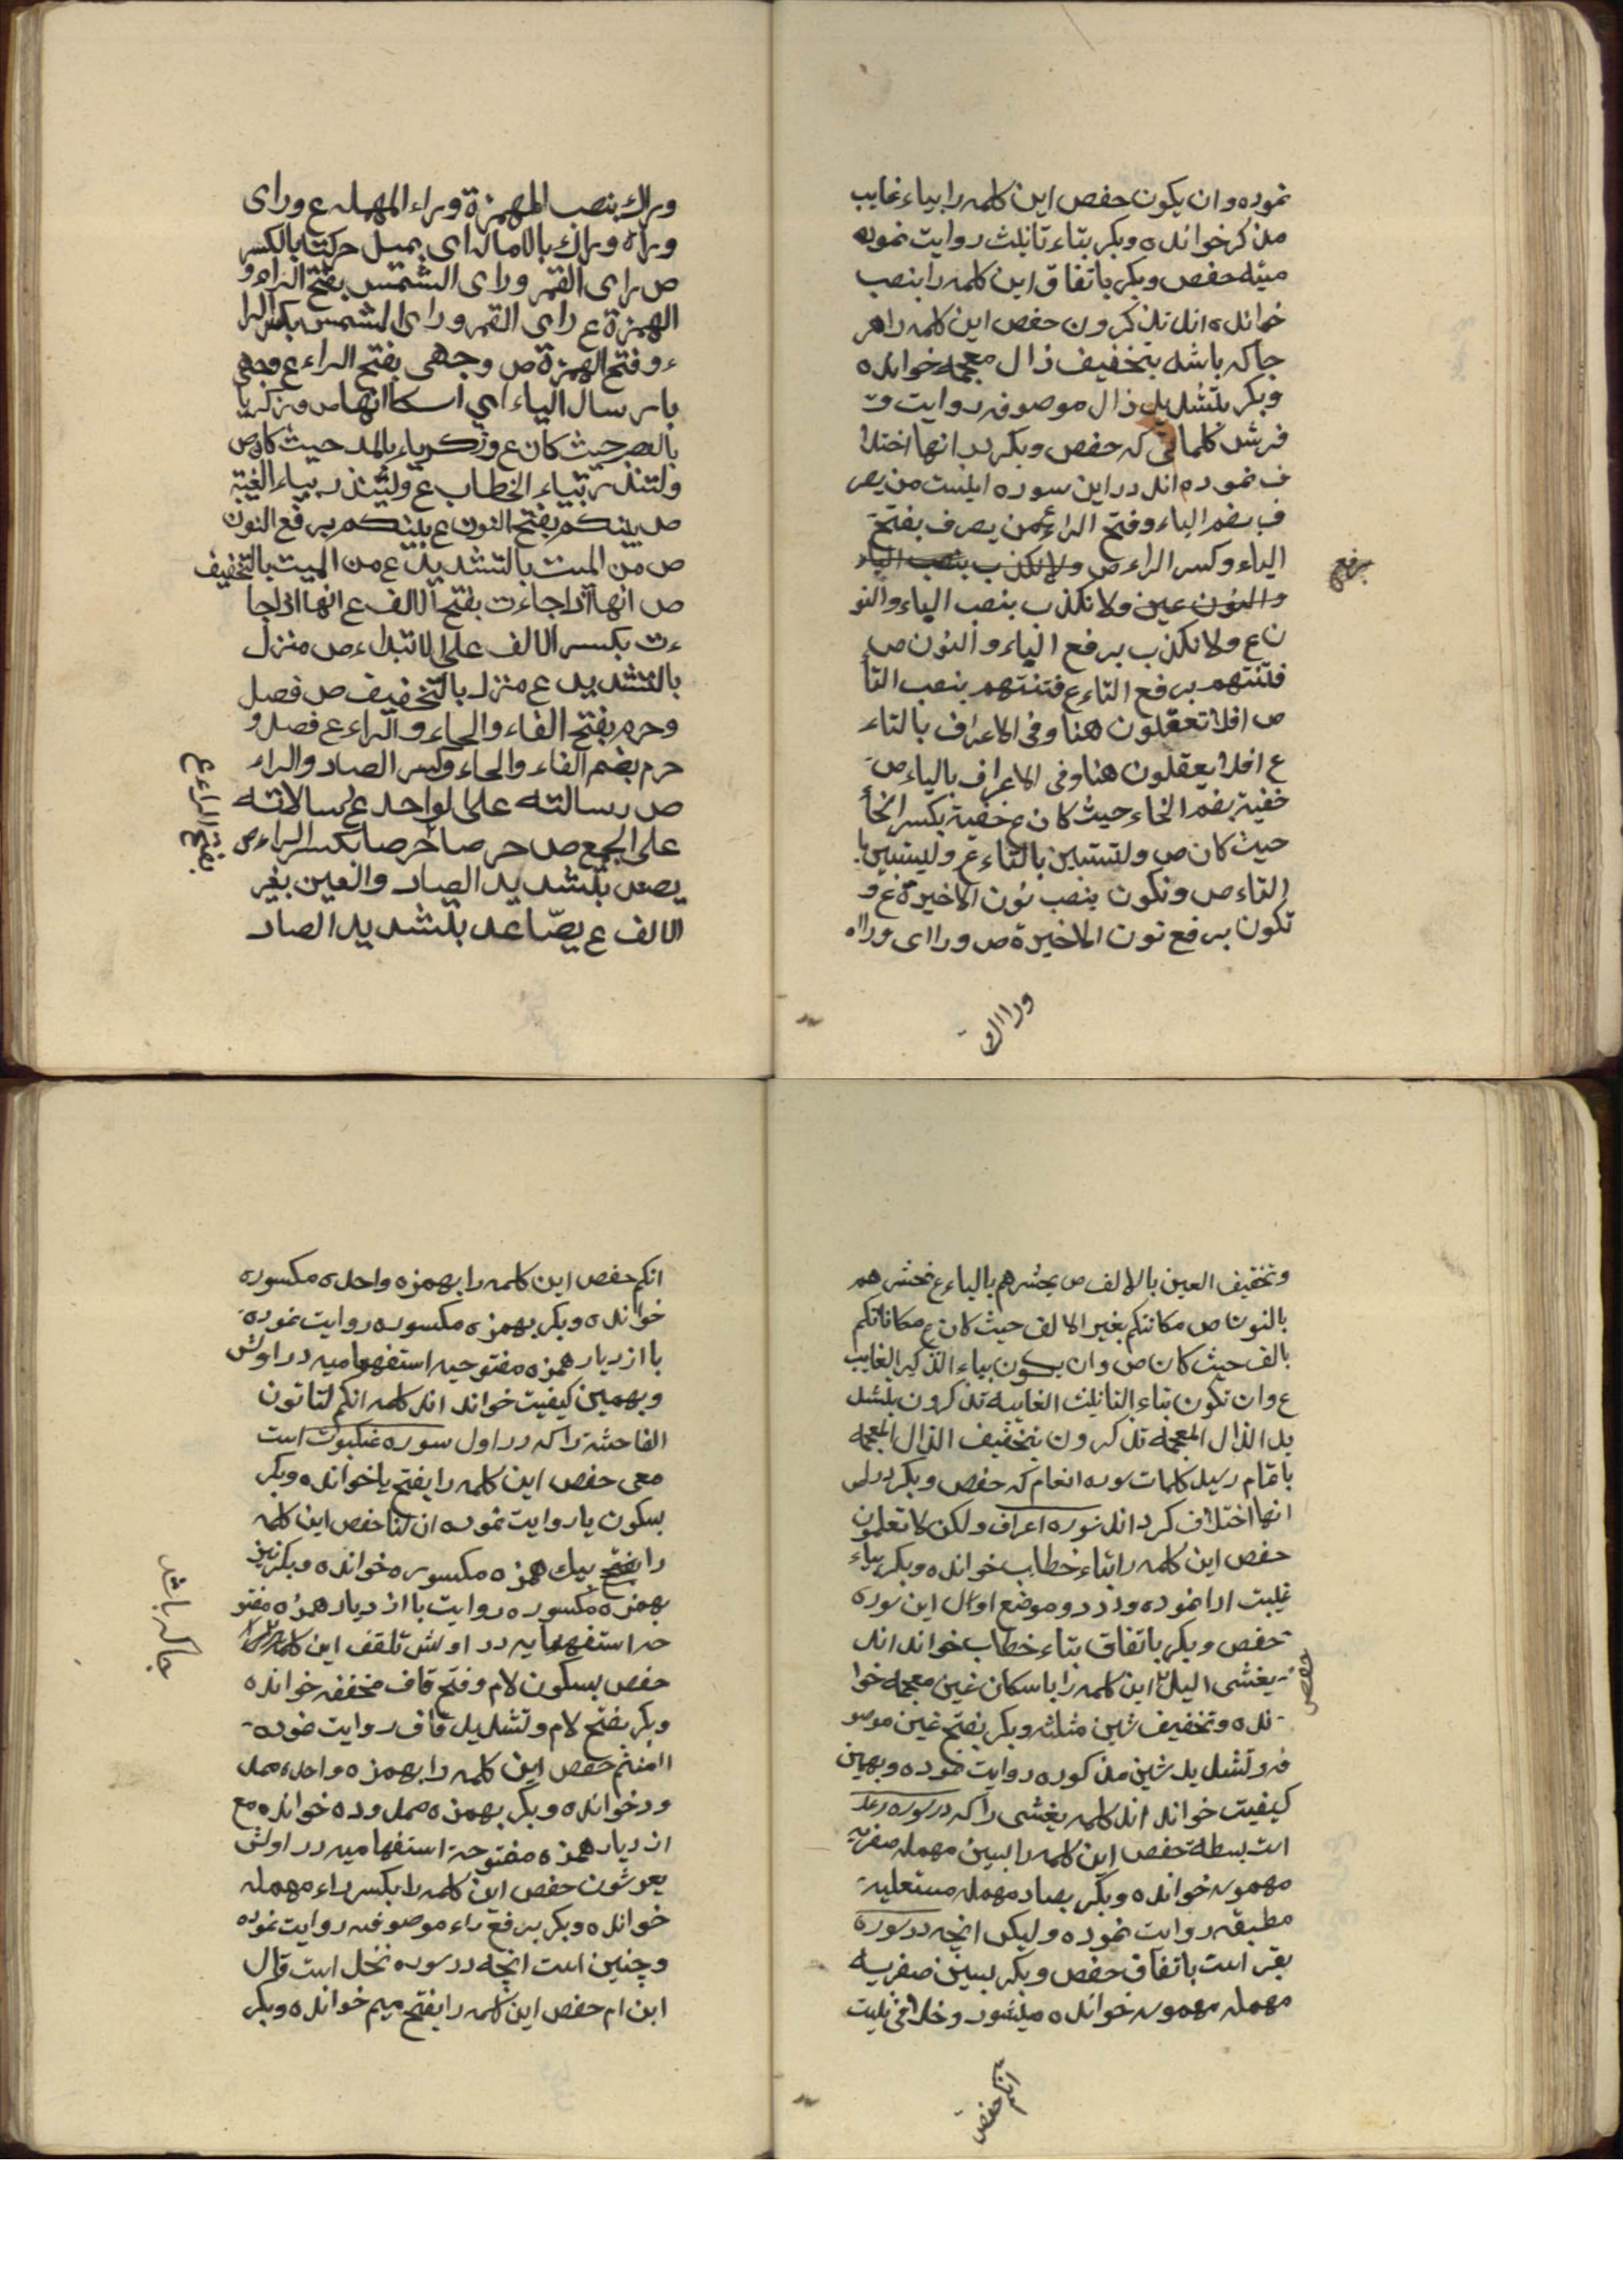 نموده وان يكون حفص اين كلمه را بياء غايب
مذكر خوانده وبكر بتاء تانيث روايت نموده
ميته حفص وبكر باتفاق اين كلمه را بنصب
خوانده اند تذكرون حفص اين كلمه را هر
جا كه باشد بتخفيف ذال معجمه خوانده
وبكر بتشديد ذال موصوفه روايت وت
فرشد كلماتى كه حفص وبكر در انها اختلا
ف نموده اند در اين سوره اينست من يصر
ف بضم الياء وفتح الراء ع من يصرف بفتح
الياء وكسر الراء ص ولا نكذب بنصب الياء
والنون عين ولا نكذب بنصب الياء والنو
ن ع ولا نكذب برفع الياء والنون ص
فتنتهم برفع التاء ع فتنتهم بنصب التا
ص افلا تعقلون هنا وفى الاعراف بالتاء
ع افلا يعقلون هنا وفى الاعراف بالياء ص
خفية بضم الخاء حيث كان ع خفية بكسر الخا
حيث كان ص ولتستبين بالتاء ع وليستبين با
التاء ص ونكون بنصب نون الاخيرة ع و
نكون برفع نون الاخيرة ص وراى وراه
برفع
وراك
وراك بنصب الهمزة وراء المهمله ع وراى
وراه وراك بالاماله اى بميل حركتها بالكسر
ص راى القمر وراى الشمس بفتح الراء و
الهمزة ع راى القمر وراى الشمس بكسر الرا
ء وفتح الهمزة ص وجهى بفتح الراء ع وجهى
بارسال الياء اي اسكانها ص وزكريا
بالقصر حيث كان ع وزكرياء بالمد حيث كان ص
ولتنذر بتاء الخطاب ع ولينذر بياء الغيبة
ص بينكم بفتح النون ع بينكم برفع النون
ص من الميت بالتشديد ع من الميت بالتخفيف
ص انها اذا جاءت بفتح الالف ع انها اذا جا
ءت بكسر الالف على الابتداء ص منزل
بالتشديد ع منزل بالتخفيف ص فصل
وحرم بفتح الفاء والحاء والراء ع فصل و
حرم بضم الفاء والحاء وكسر الصاد والراء
ص رسالته على الواحد ع رسالاته
على الجمع ص حرصا حرصا بكسر الراء ص
بفتح الراء ع
يصعد بتشديد الصاد والعين بغير
الالف ع يصّاعد بتشديد الصاد
وتخفيف العين بالالف ص يحشرهم بالياء ع نحشرهم
بالنون ص مكانتكم بغير الالف حيث كان ع مكاناتكم
بالف حيث كان ص وان يكون بياء التذكير الغايب
ع وان تكون بتاء التانيث الغايبة تذكرون بتشد
يد الذال المعجمة تذكرون بتخفيف الذال المعجمة
باتمام رسيد كلمات سوره انعام كه حفص وبكر در
انها اختلاف كرد اند سوره اعراف ولكن لا تعلمون
حفص اين كلمه را بتاء خطاب خوانده وبكر بياء
غيبت ادا نموده ودر دو موضع اوائل اين سوره
حفص وبكر باتفاق بتاء خطاب خوانده اند
يغشى الليل اين كلمه را باسكان غين معجمه خوا
حفص
نده وتخفيف شين مثلثه وبكر بفتح غين موصو
فه وتشديد شين مذكوره روايت نموده وبهمين
كيفيت خوانده اند كلمه يغشى را كه در سوره رعد
است بسطة حفص اين كلمه را بسين مهمله صفريه
مهموسه خوانده وبكر بصاد مهمله مستعليه
مطبقه روايت نموده وليكن انچه در سوره
بقر است باتفاق حفص وبكر بسين صفريه
مهمله مهموسه خوانده ميشود وخلافى نيست
انكم حفص
انكم حفص اين كلمه را بهمزه واحده مكسوره
خوانده وبكر بهمزه مكسوره روايت نموده
با ازدياد همزه مفتوحيه استفهاميه در اولش
وبهمين كيفيت خوانده اند كلمه انكم لتاتون
الفاحشة را كه در اول سوره عنكبوت است
معى حفص اين كلمه را بفتح يا خوانده وبكر
بسكون يا روايت نموده ان لنا حفص اين كلمه
را بفتح بيك همزه مكسوره خوانده وبكر نيز
بهمزه مكسوره روايت با ازدياد همزه مفتو
حه استفهاميه در اولش تلقف اين كلمه را هر
جا كه باشد
حفص بسكون لام وفتح قاف مخففه خوانده
وبكر بفتح لام وتشديد قاف روايت نموده
اامنتم حفص اين كلمه را بهمزه واحده ممد
ود خوانده وبكر بهمزه ممدوده خوانده مع
ازدياد همزه مفتوحة استفهاميه در اولش
يعرشون حفص اين كلمه را بكسر راء مهمله
خوانده وبكر برفع راء موصوفه روايت نموده
وچنين است انچه در سوره نحل است قال
ابن ام حفص اين كلمه را بفتح ميم خوانده وبكر